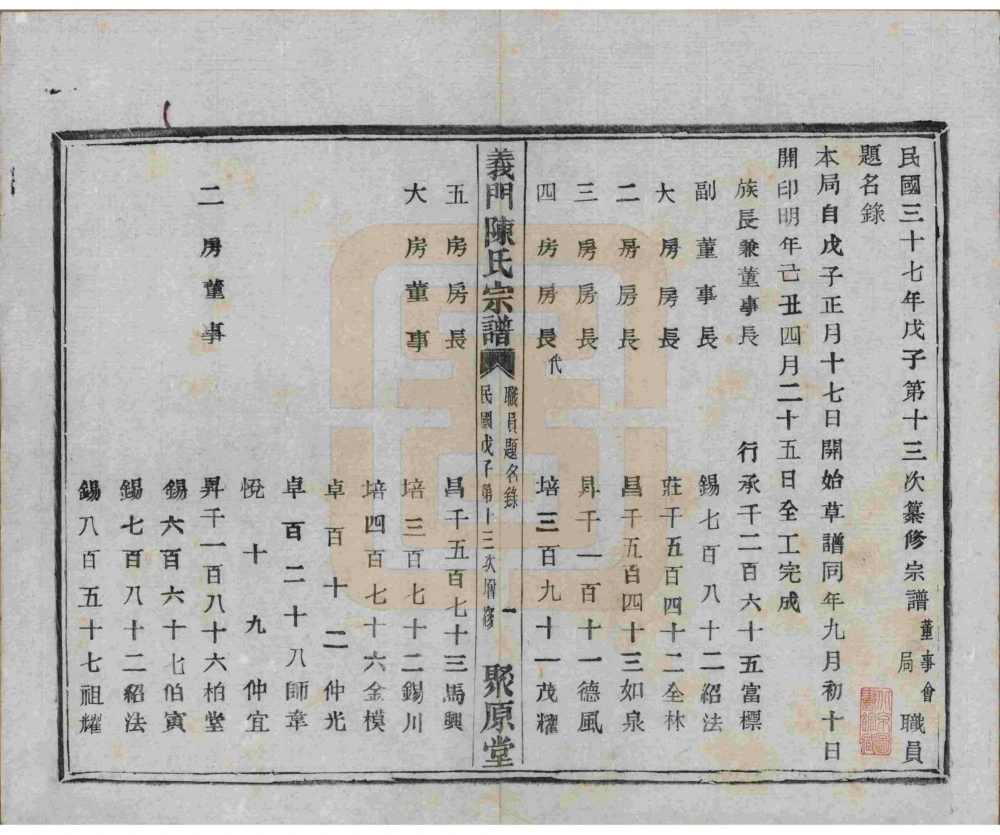 民國三十七年戊子第十三次纂修宗譜董事會局職員
題名錄
本局自戊子正月十七日開始草譜同年九月初十日
開印明年己丑四月二十五日全工完成
族長兼董事長 行承千二百六十五富標
副董事長 錫七百八十二紹法
大房房長 莊千五百四十二全林
二房房長 昌千五百四十三如泉
三房房長 昇千一百十一德風
四房房長代 培三百九十一茂耀
義門陳氏宗譜 職員題名錄 民國戊子第十三次增修 一 聚原堂
五房房長 昌千五百七十三馬興
大房董事 培三百七十二錫川
培四百七十六金模
卓百十二仲光
卓百二十八師韋
悅十九仲宜
二房董事 昇千一百八十六柏堂
錫六百六十七伯寅
錫七百八十二紹法
錫八百五十七祖耀